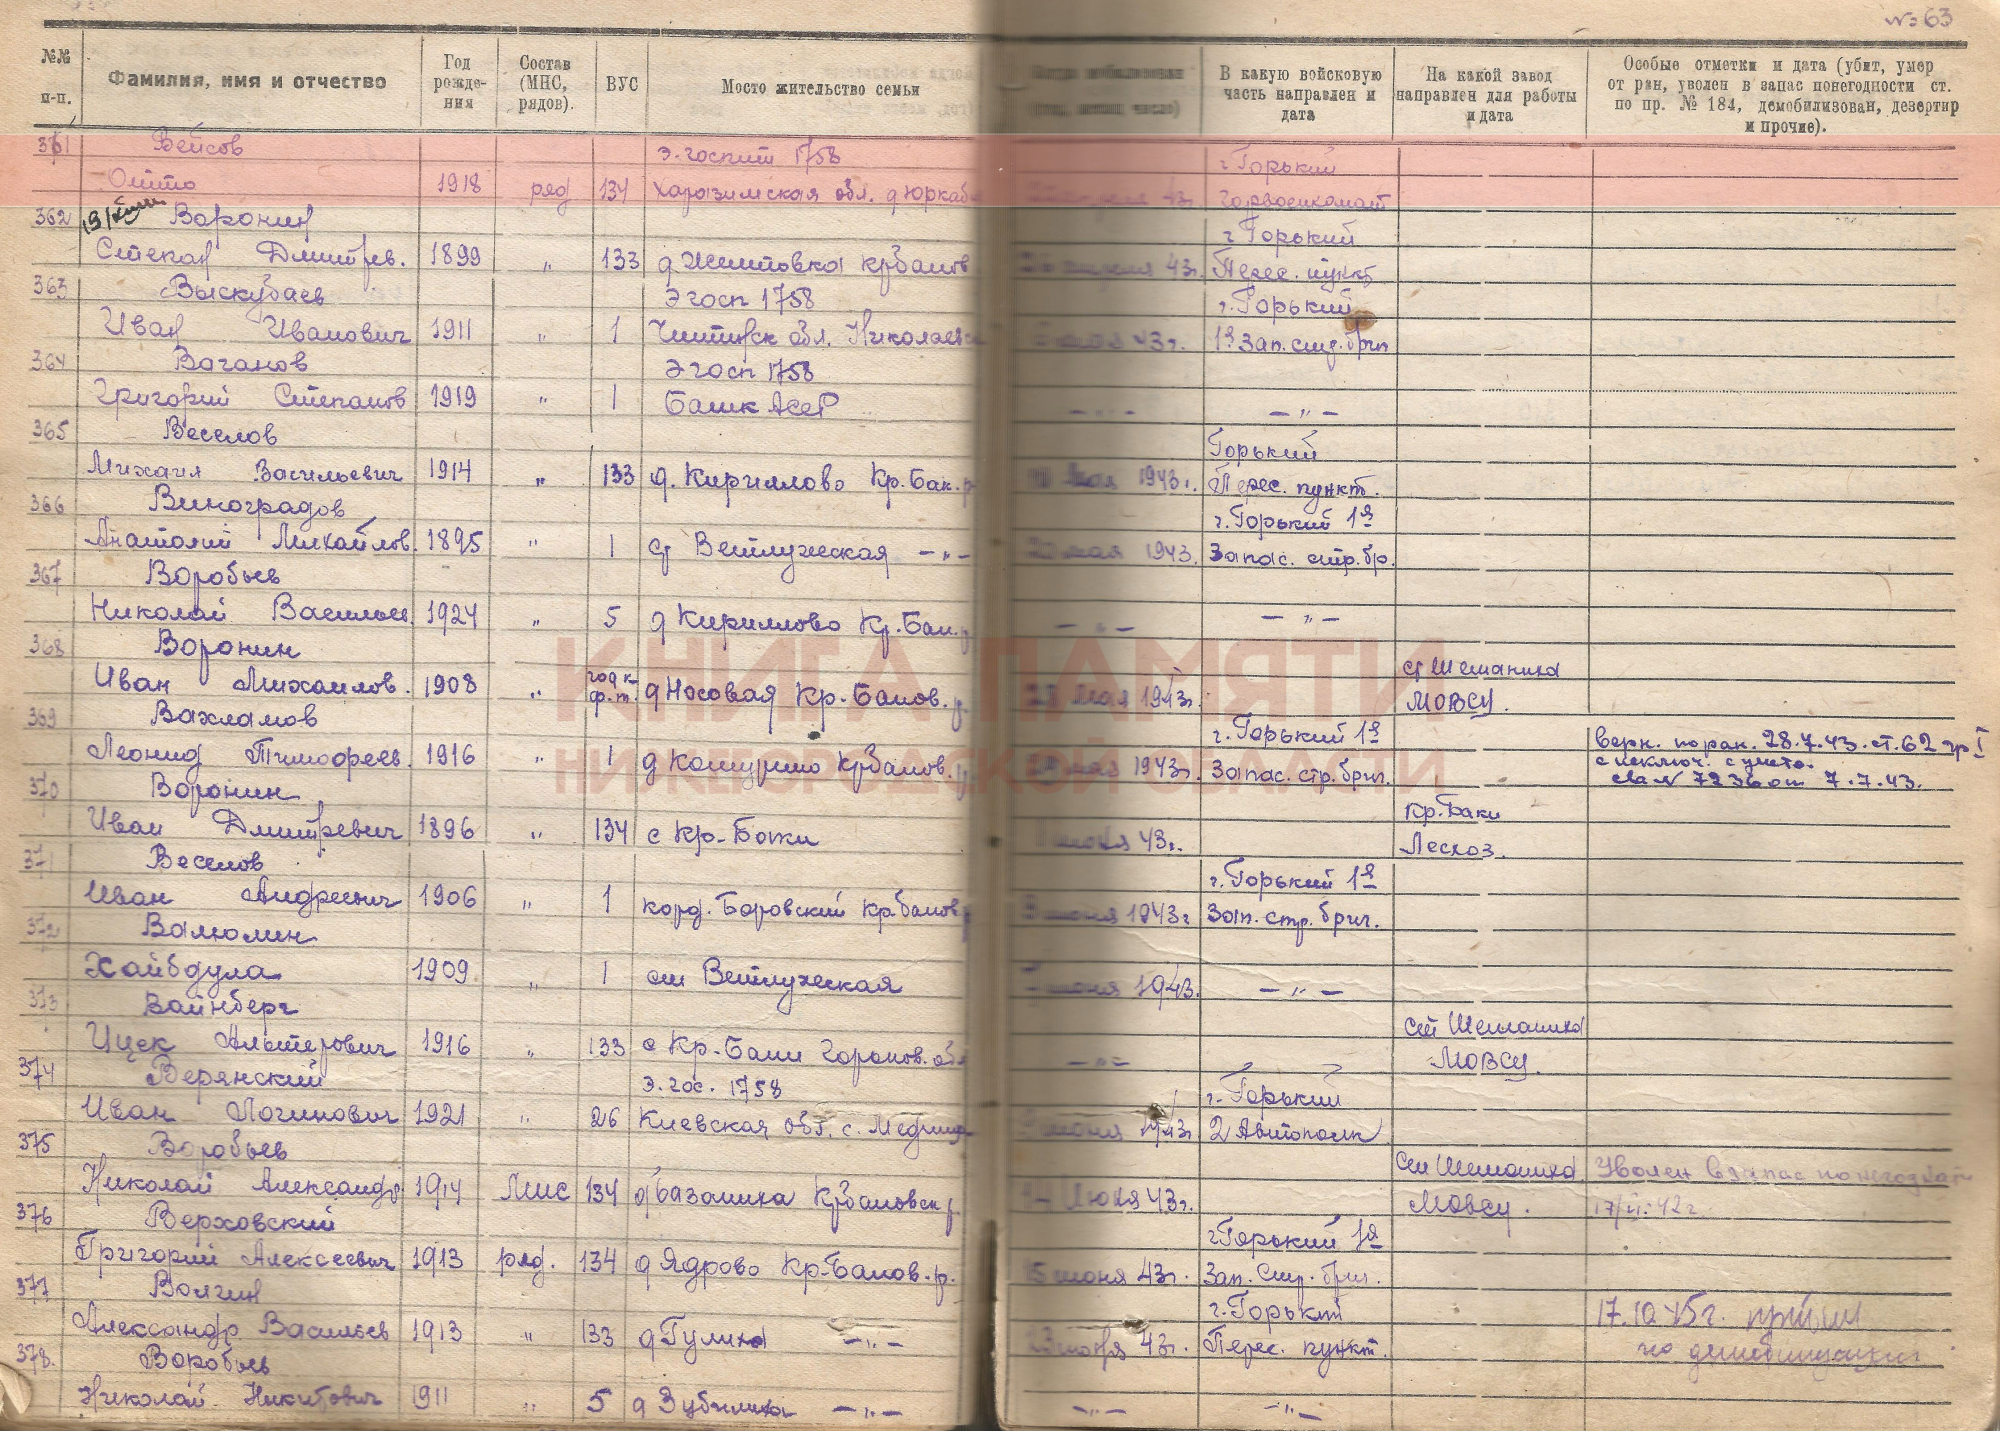 № 63
№№ п-п.
Фамилия, имя и отчество
Год рожде-ния
Состав (МНС, рядов).
ВУС
Мосто жительство семьи
В какую войсковую часть направлен и дата
На какой завод направлен для работы и дата
Особые отметки и дата (убит, умер от ран, уволен в запас понегодности ст. по пр. № 184, демобилизован, дезертир и прочие).
361 Вейсов э. госпит 1758 г. Горький
1918 ряд 134 обл. 43г. Горвоенкомат
362 Воронин г Горький
Степан Дмитрев. 1899 " 133 43г. Перес. пункт
363 Выскубаев Э госп 1758 г. Горький
Иван Иванович 1911 " 1 Читинск обл. 43г. 1я Зап. стр. бриг
364 Ваганов Э госп 1758
Григорий Степанов 1919 " 1 Башк АССР — " — — " —
365 Веселов Горький
Михаил Васильевич 1914 " 133 д. Кириллово Кр. Бак. р мая 1943г. Перес. пункт.
366 Виноградов г. Горький 1я
Анатолий Михайлов. 1895 " 1 ст Ветлужская — " — мая 1943. Запас. стр. бр.
367 Воробьев
Николай Васильев. 1924 " 5 д Кириллово Кр. Бак. р — " — — " —
368 Воронин ст Шеманиха
Иван Михайлов. 1908 " год к ф.т. д Носовая Кр. Баков. р. мая 1943г. МОВСУ.
369 Вахламов г. Горький 1я
Леонид Тимофеев. 1916 " 1 Кр Баков. р мая 1943г. Запас. стр. бриг. верн. по ран. 28.7.43. ст. 62 гр I
с исключ. с учета.
7.7.43.
370 Воронин Кр. Баки
Иван Дмитревич 1896 " 134 с Кр-Баки июня 43г. Лесхоз.
371 Веселов г. Горький 1я
Иван Андреевич 1906 " 1 корд. Боровский Кр Баков р июня 1943г Зап. стр. бриг.
372 Валюлин
Хайбдула 1909. " 1 ст Ветлужская июня 1943. — " —
373 Вайнберг ст Шеманиха
Ицек Альтерович 1916 " 133 с Кр-Баки — " — МОВСУ.
374 Верянский э. гос. 1758 г. Горький
Иван Логинович 1921 " 26 Киевская обл. с. июня 43г 2 Автополк
375 Воробьев ст Шеманиха Уволен в запас по негодност
Николай Александр 1914 МНС 134 Кр Баковск р. июня 43г. МОВСУ.
376 Верховский г Горький 1я
Григорий Алексеевич 1913 ряд. 134 д Ядрово Кр-Баков. р. 15 июня 43г. Зап. Стр. бриг.
377 Волгин г. Горький 17.10.45г. прибыл
Александр Васильев 1913 " 133 — " — 43г. Перес. пункт. по демобилизации
378. Воробьев
Николай Никитович 1911 " 5 д Зубилиха — " — — " — — " —
КНИГА ПАМЯТИ
НИЖЕГОРОДСКОЙ ОБЛАСТИ